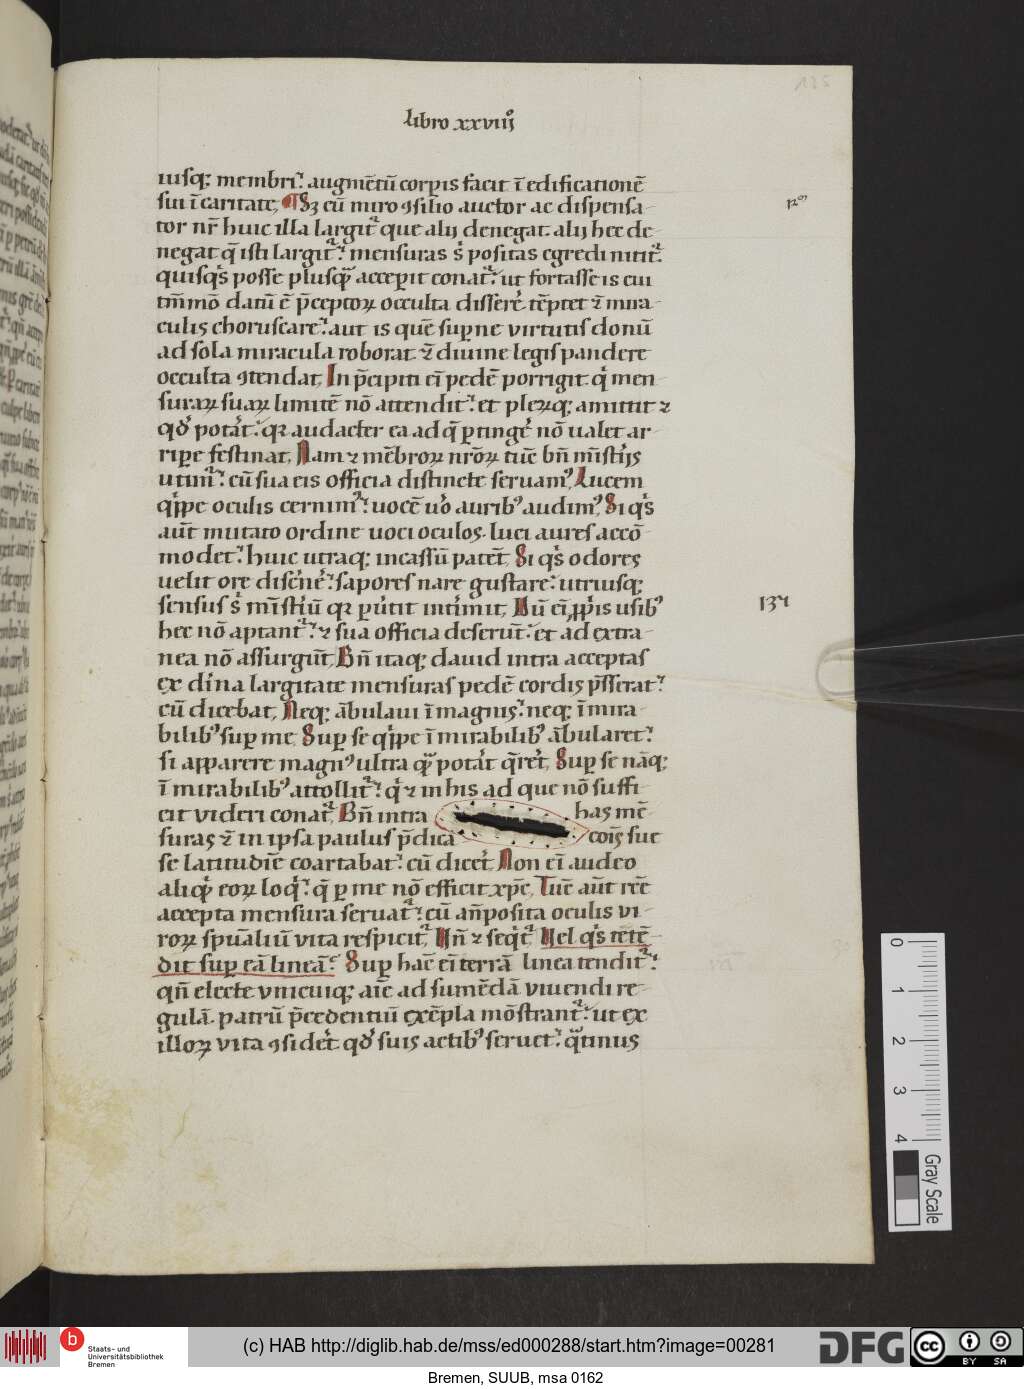 libro xxviijº
iusq; membri. augmētū corpis facit ī edificationē
sui ī caritate, ¶ Sꝫ cū miro ꝯsilio auctor ac dispensa-
tor nr̄ huic illa largitᷓ que alij denegat. alij hec de-
negat q̄ isti largitᷓ. mensuras ṡ positas egredi nititᷓ.
quisqͥs posse plusqᷓ accepit conatᷓ. ut fortasse is cui
tm̄mō datū ē p̄ceptoꝝ occulta disserē tēptet ⁊ mira-
culis choruscare. aut is quē superne virtutis donū
ad sola miracula roborat ⁊ diuine legis pandere
occulta ꝯtendat, In p̄cipiti eī pedē porrigit qͥ men-
suraꝝ suaꝝ limitē nō attendit. et pleꝝq; amittit ⁊
qđ potāt. qꝛ audacter ea ad q̄ ꝑtingē nō ualet ar-
ripe festinat, Nam ⁊ mēbroꝝ nr̄oꝝ tūc bn̄ mīstijs
utimᷓ. cū sua eis officia distincte seruamꝰ, Lucem
qͥppe oculis cernimꝰ. uocē ůo auribꝰ audimꝰ, Si qͥs
aūt mutato ordine uoci oculos. luci aures accō-
modet. huic utraq; incassū patēt, Si qͥs odores
uelit ore discnē. sapores nare gustare. utriusq;
sensus ṡ mīstīū qꝛ ꝑůtit intimit, Dū eī ꝓpͥis usibꝰ
hec nō aptantᷓ. ⁊ sua officia deserūt. et ad extra-
nea nō assurgūt, Bn̄ itaq; dauid intra acceptas
ex diīna largitate mensuras pedē cordis p̄sserat.
cū dicebat, Neq; ābulaui ī magnis. neq; ī mira-
bilibꝰ suꝑ me, Suꝑ se qͥppe ī mirabilibꝰ ābularet.
si apparere magnꝰ ultra qᷓ potāt q̄rēt, Suꝑ se nāq;
ī mirabilibꝰ attollitᷓ. qͥ ⁊ in his ad que nō suffi-
cit videri conatᷓ, Bn̄ intra has mē-
suras ⁊ in ipsa paulus p̄dica coīs sue
se latitudīe coartabat. cū dicēt, Non eī audeo
aliqͥ eoꝝ loqͥ. q̄ ꝑ me nō efficit xp̄c, Tūc aūt rc̄e
accepta mensura seruatᷓ. cū an̄posita oculis vi-
roꝝ spūaliū vita respicitᷓ, Vn̄ ⁊ seqͥtᷓ, Vel qͥs tetē-
dit suꝑ eā lineā. Suꝑ hāc eī terrā linea tenditᷓ.
qn̄ electe vnicuiq; aīe ad sumēdā viuendi re-
gulā. patrū p̄cedentiū exēpla mōstrantᷓ. ut ex
illoꝝ vita ꝯsidēt qđ suis actibꝰ seruet. qᷓtinus
137
0
1
2
3
4
Gray Scale
b
Staats- und
Universitätsbibliothek
Bremen
(c) HAB http://diglib.hab.de/mss/ed000288/start.htm?image=00281
DFG
cc
BY SA
Bremen, SUUB, msa 0162